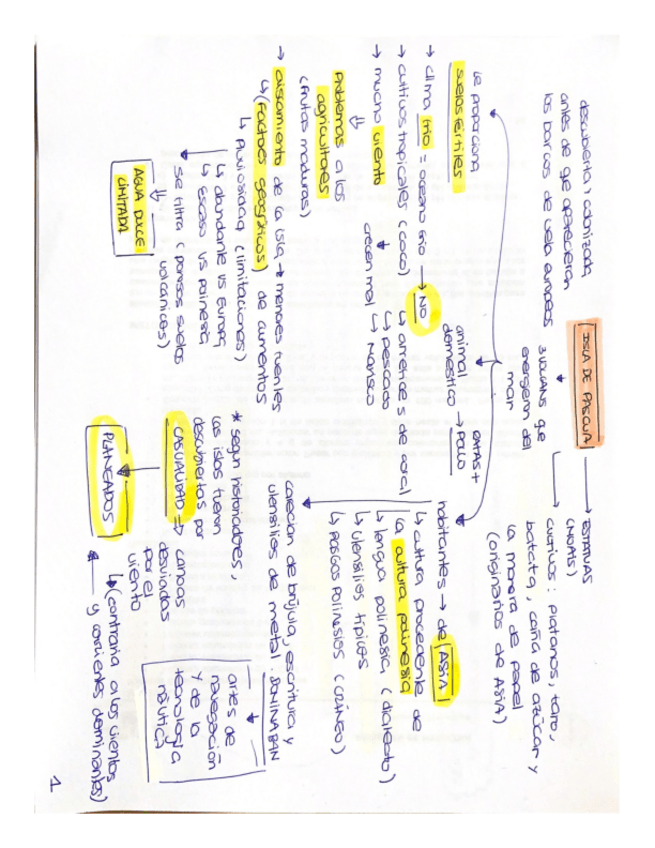 ISLA DE PASCUA
descubierta y colonizada
antes de qe aparecieran
los barcos de vela europeos
3 volcans que
emergieron del
mar
ESTATUAS
(MOAIS)
cultivos: platanos, taro,
batata, caña de azúcar y
la morera de papel
(originarios de ASIA)
le proporciona
suelos fértiles
→ clima frío = oceano frío → NO
→ cultivos tropicales (coco)
→ mucho viento
crecen mal
Problemas a los
agricultores
(frutas maduras)
↳ arrecifes de coral
↳ pescado
↳ Marisco
animal
doméstico → ratas +
POLLO
habitantes → de ASIA
↳ cultura procedente de
la cultura polinesia
↳ lengua polinesia (dialecto)
↳ utensilios típicos
↳ rasgos polinesios (cráneo)
→ aislamiento de la isla → menores fuentes
↳ (Factores geográficos) de aumentos
↳ Pluviosidad (limitaciones)
↳ abundante vs Europa
↳ Escaso vs Polinesia
se filtra (porosos suelos
volcánicos)
AGUA DULCE
LIMITADA
carecían de brújula, escritura y
utensilios de metal. DOMINABAN
artes de
navegación
y de la
tecnología
náutica
* según historiadores,
las islas fueron
descubiertas por
CASUALIDAD ⇒ canoas
desviadas
por el
viento
PLANEADOS
↳ (contraria a los vientos
y corrientes dominantes)
1